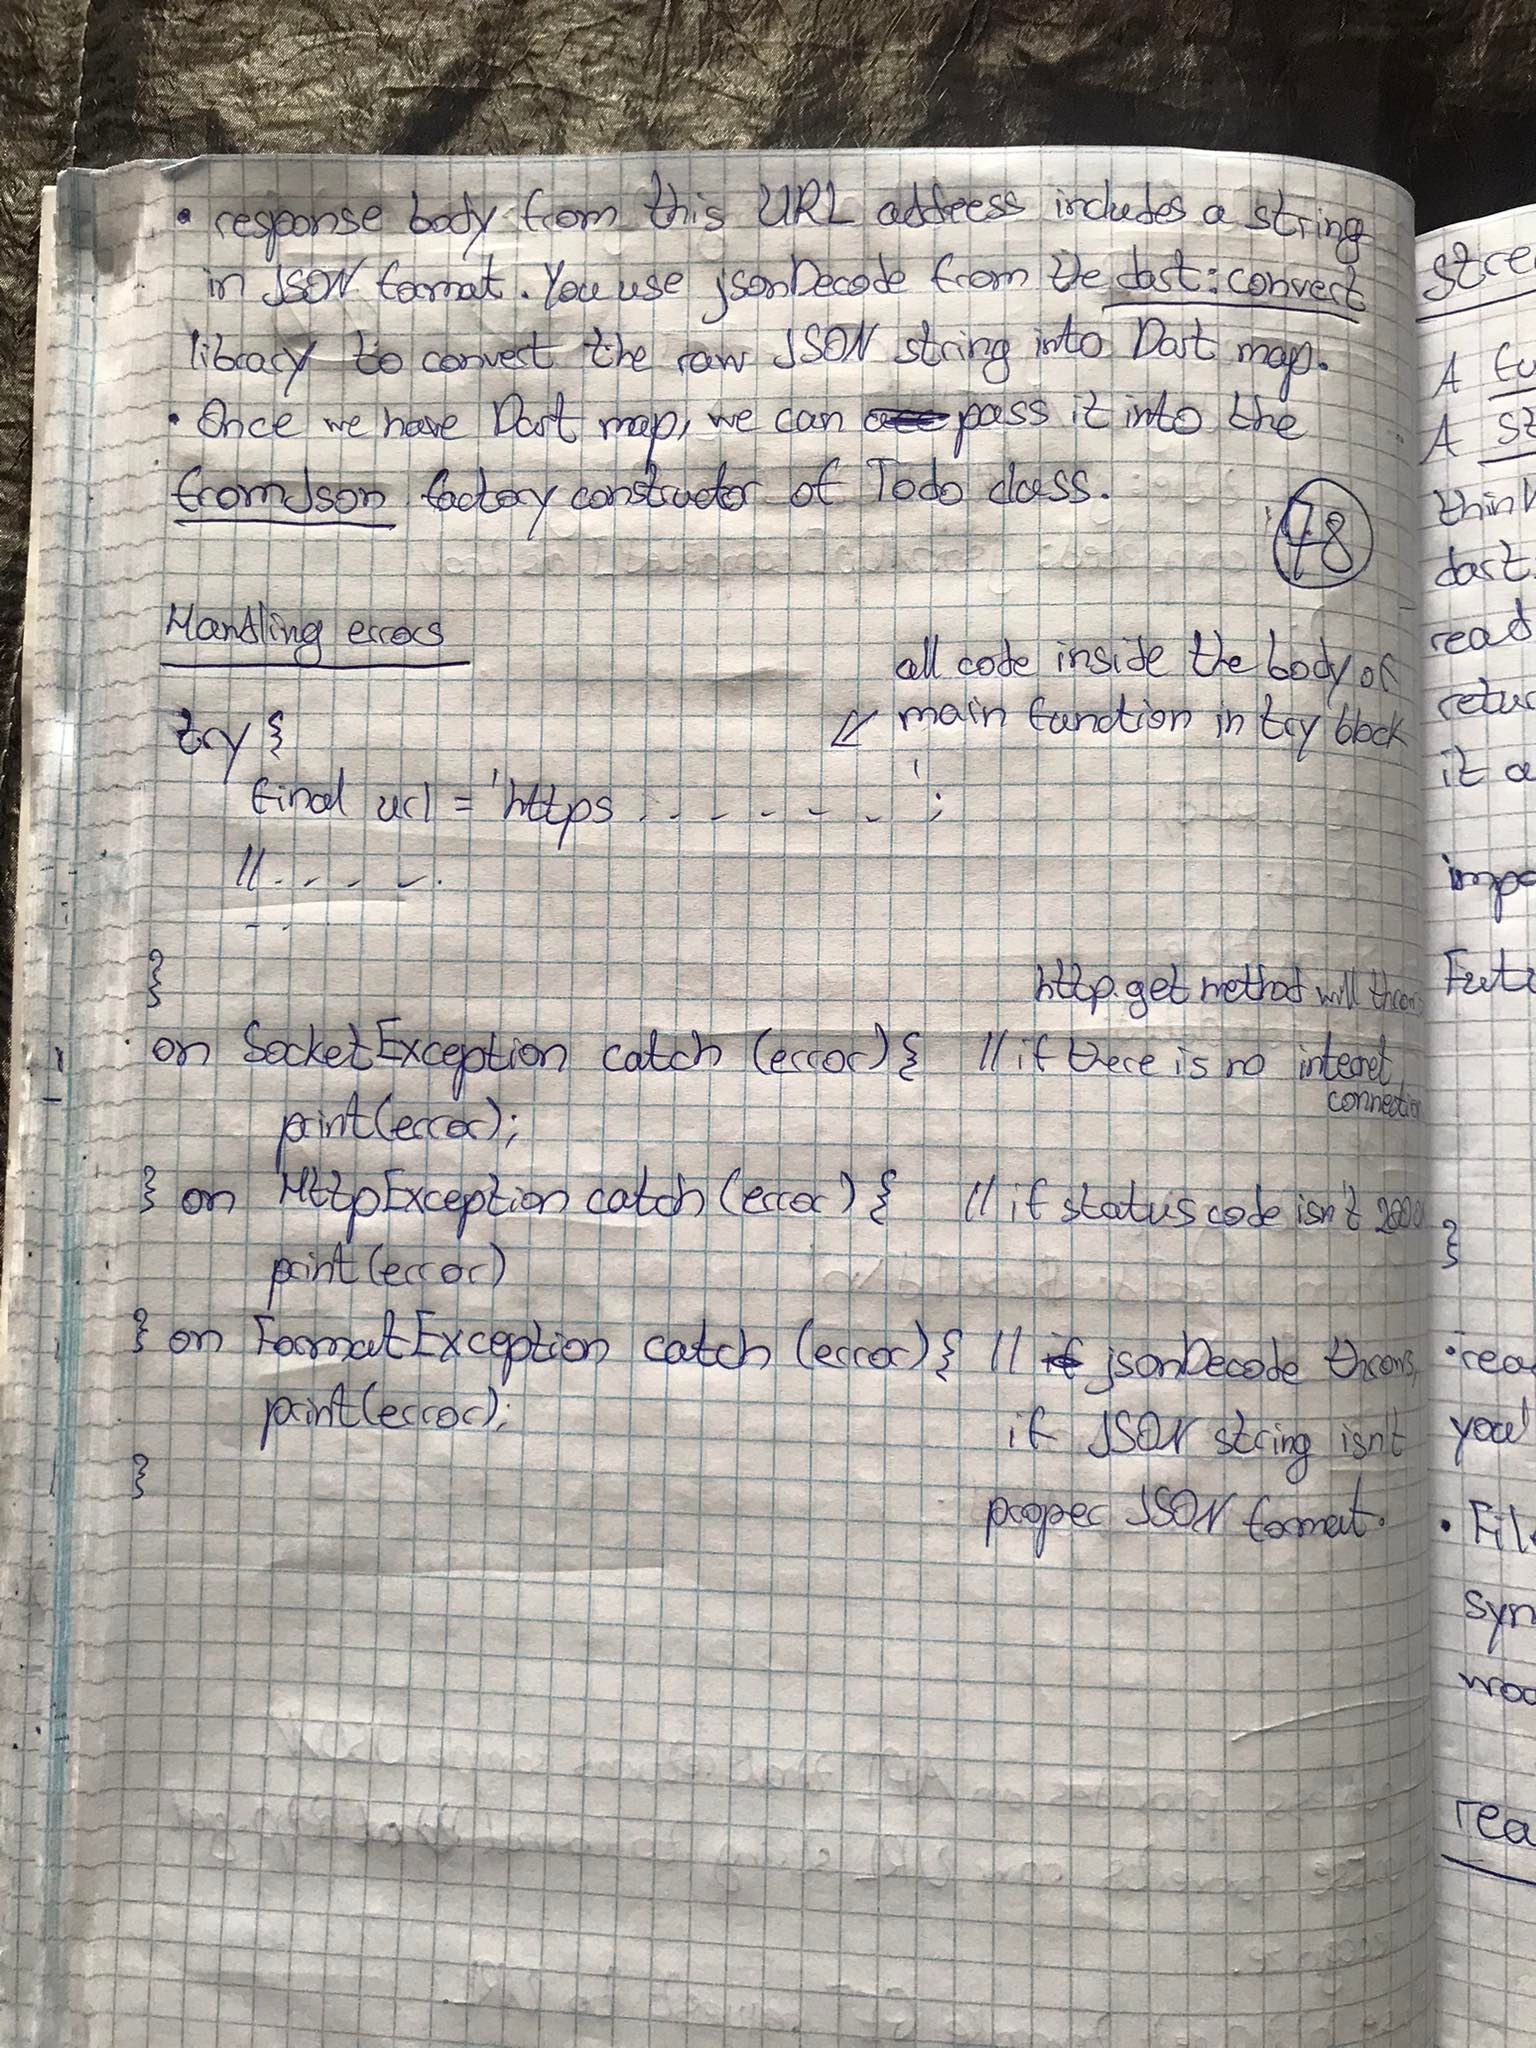 • response body from this URL address includes a string
in JSON format. You use jsonDecode from the dart:convert
library to convert the raw JSON string into Dart map.
• Once we have Dart map, we can pass it into the
fromJson factory constructor of Todo class.
78
Handling errors
all code inside the body of
main function in try block
try {
final url = 'https : . - - - - - ' ;
// . - - - .
- - .
}
http.get method will throw
on SocketException catch (error) { // if there is no interet
connection
print(error);
} on HttpException catch (error) { // if status code isn't 200
print(error)
} on FormatException catch (error) { // jsonDecode throws,
print(error);
if JSON string isn't
}
proper JSON format.
A
A
think
dart.
read
it a
}
you'